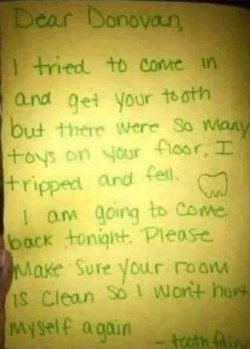 Dear Donovan,
I tried to come in
and get your tooth
but there were so many
toys on your floor, I
tripped and fell.
I am going to come
back tonight. Please
Make Sure your room
is clean so I won't hurt
myself again
- tooth fairy